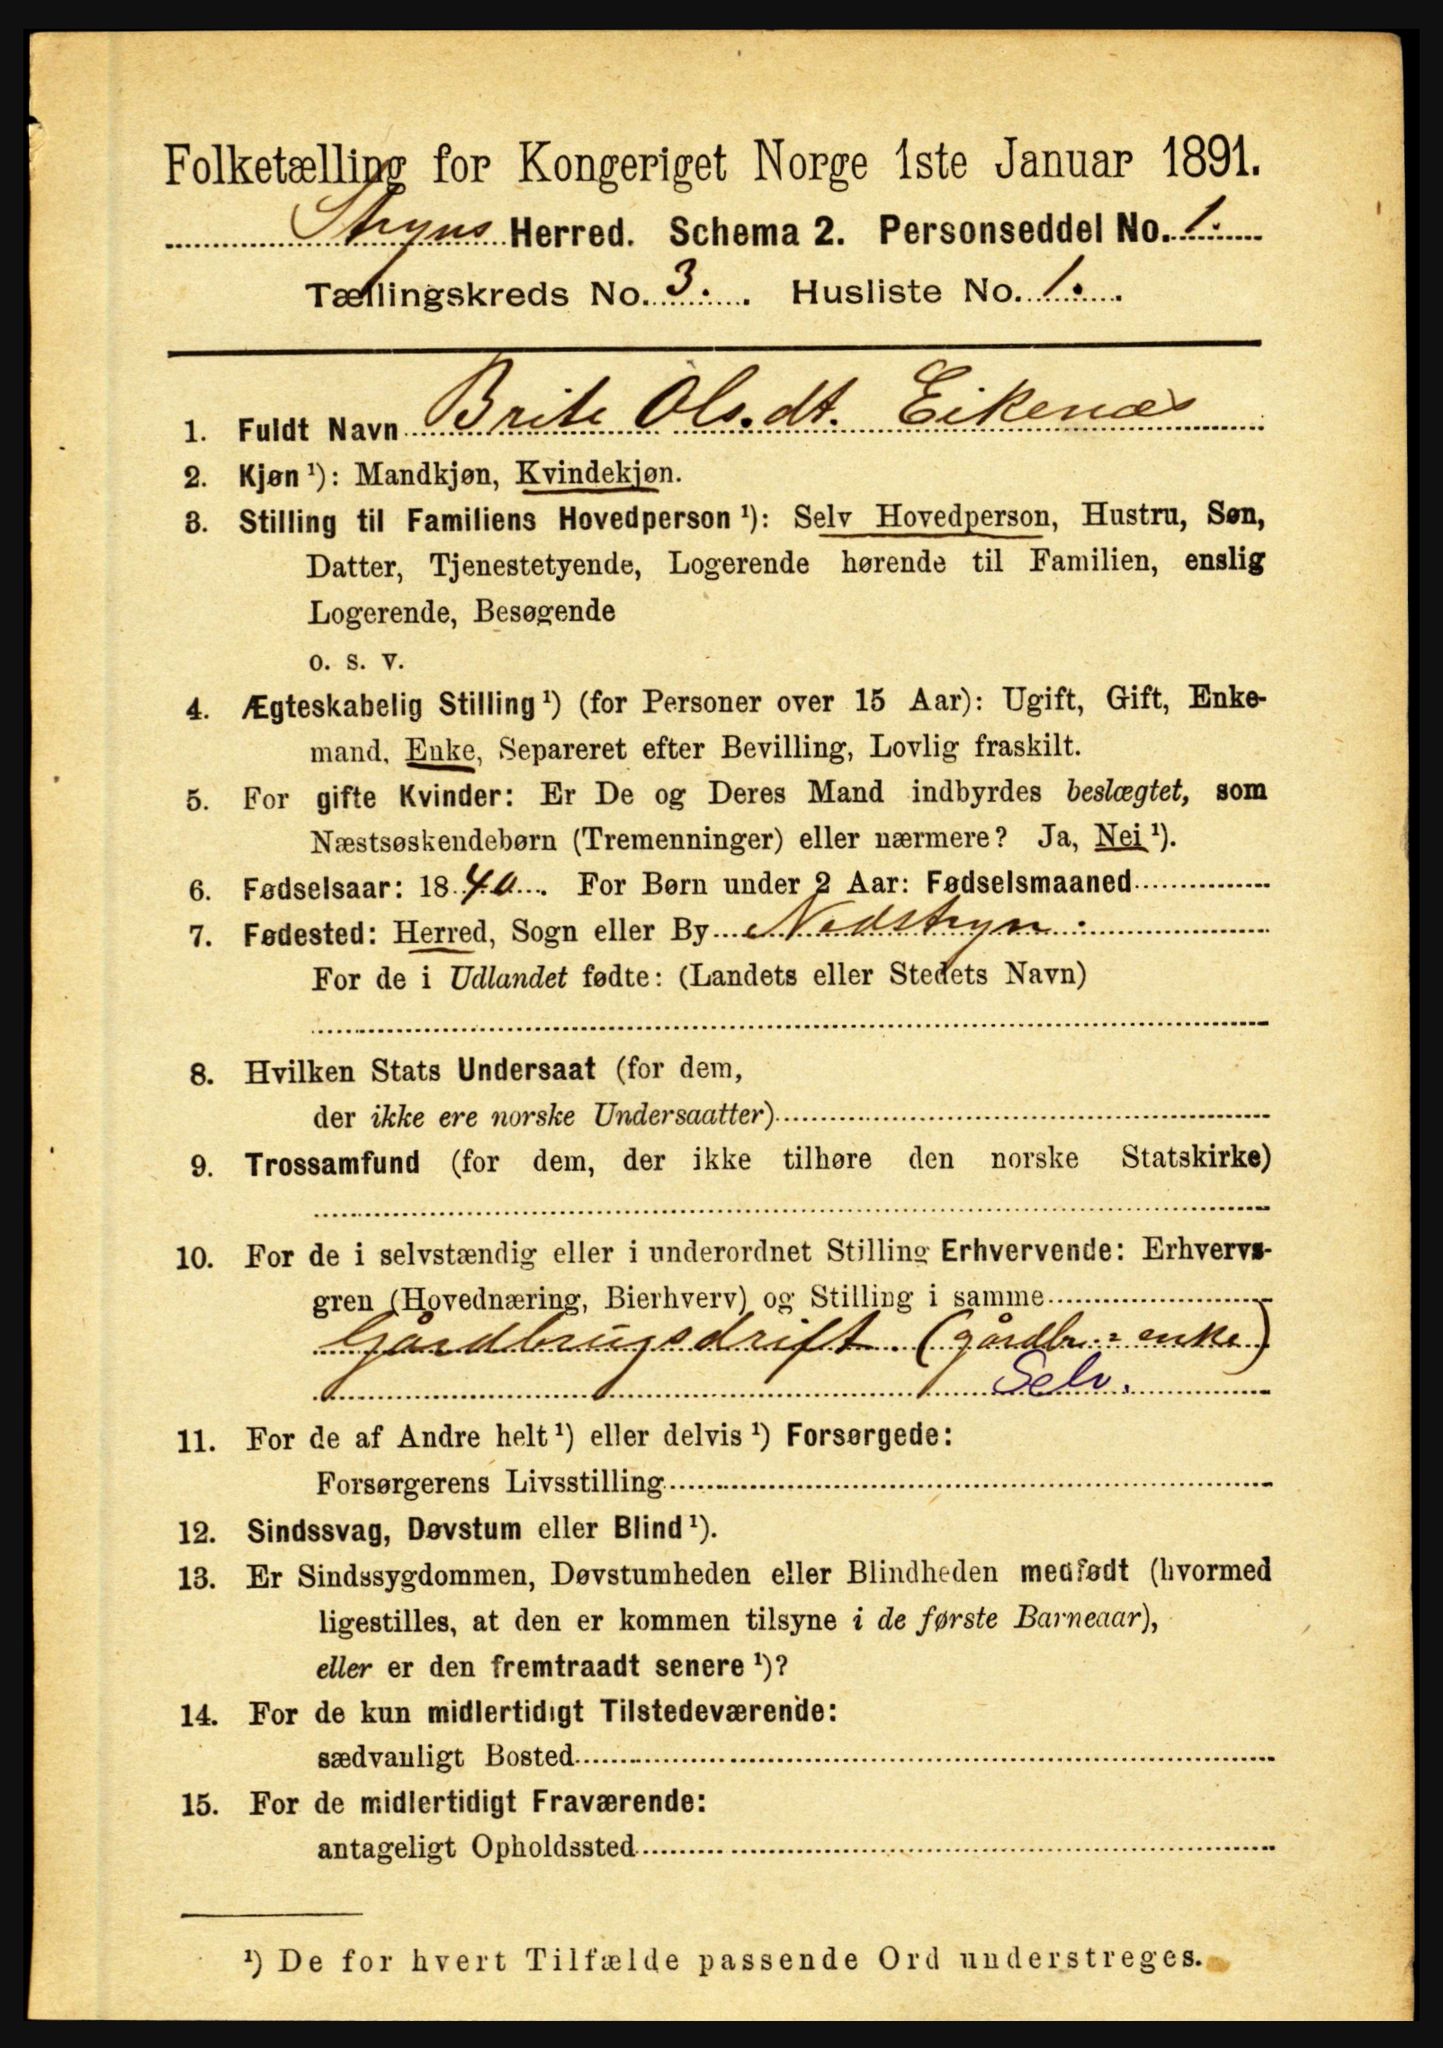 Folketælling for Kongeriget Norge 1ste Januar 1891.
Stryns Herred. Schema 2. Personseddel No. 1.
Tællingskreds No. 3. Husliste No. 1.
1. Fuldt Navn Brite Olsdt. Eikenæs
2. Kjøn ¹): Mandkjøn, Kvindekjøn.
3. Stilling til Familiens Hovedperson ¹): Selv Hovedperson, Hustru, Søn,
Datter, Tjenestetyende, Logerende hørende til Familien, enslig
Logerende, Besøgende
o. s. v.
4. Ægteskabelig Stilling ¹) (for Personer over 15 Aar): Ugift, Gift, Enke-
mand, Enke, Separeret efter Bevilling, Lovlig fraskilt.
5. For gifte Kvinder: Er De og Deres Mand indbyrdes beslægtet, som
Næstsøskendebørn (Tremenninger) eller nærmere? Ja, Nei ¹).
6. Fødselsaar: 1840. For Børn under 2 Aar: Fødselsmaaned
7. Fødested: Herred, Sogn eller By Nedstryn.
For de i Udlandet fødte: (Landets eller Stedets Navn)
8. Hvilken Stats Undersaat (for dem,
der ikke ere norske Undersaatter)
9. Trossamfund (for dem, der ikke tilhøre den norske Statskirke)
10. For de i selvstændig eller i underordnet Stilling Erhvervende: Erhvervs-
gren (Hovednæring, Bierhverv) og Stilling i samme
Gårdbrugsdrift. (gårdbr.=enke)
Selv.
11. For de af Andre helt ¹) eller delvis ¹) Forsørgede:
Forsørgerens Livsstilling
12. Sindssvag, Døvstum eller Blind ¹).
13. Er Sindssygdommen, Døvstumheden eller Blindheden medfødt (hvormed
ligestilles, at den er kommen tilsyne i de første Barneaar),
eller er den fremtraadt senere ¹)?
14. For de kun midlertidigt Tilstedeværende:
sædvanligt Bosted
15. For de midlertidigt Fraværende:
antageligt Opholdssted
¹) De for hvert Tilfælde passende Ord understreges.